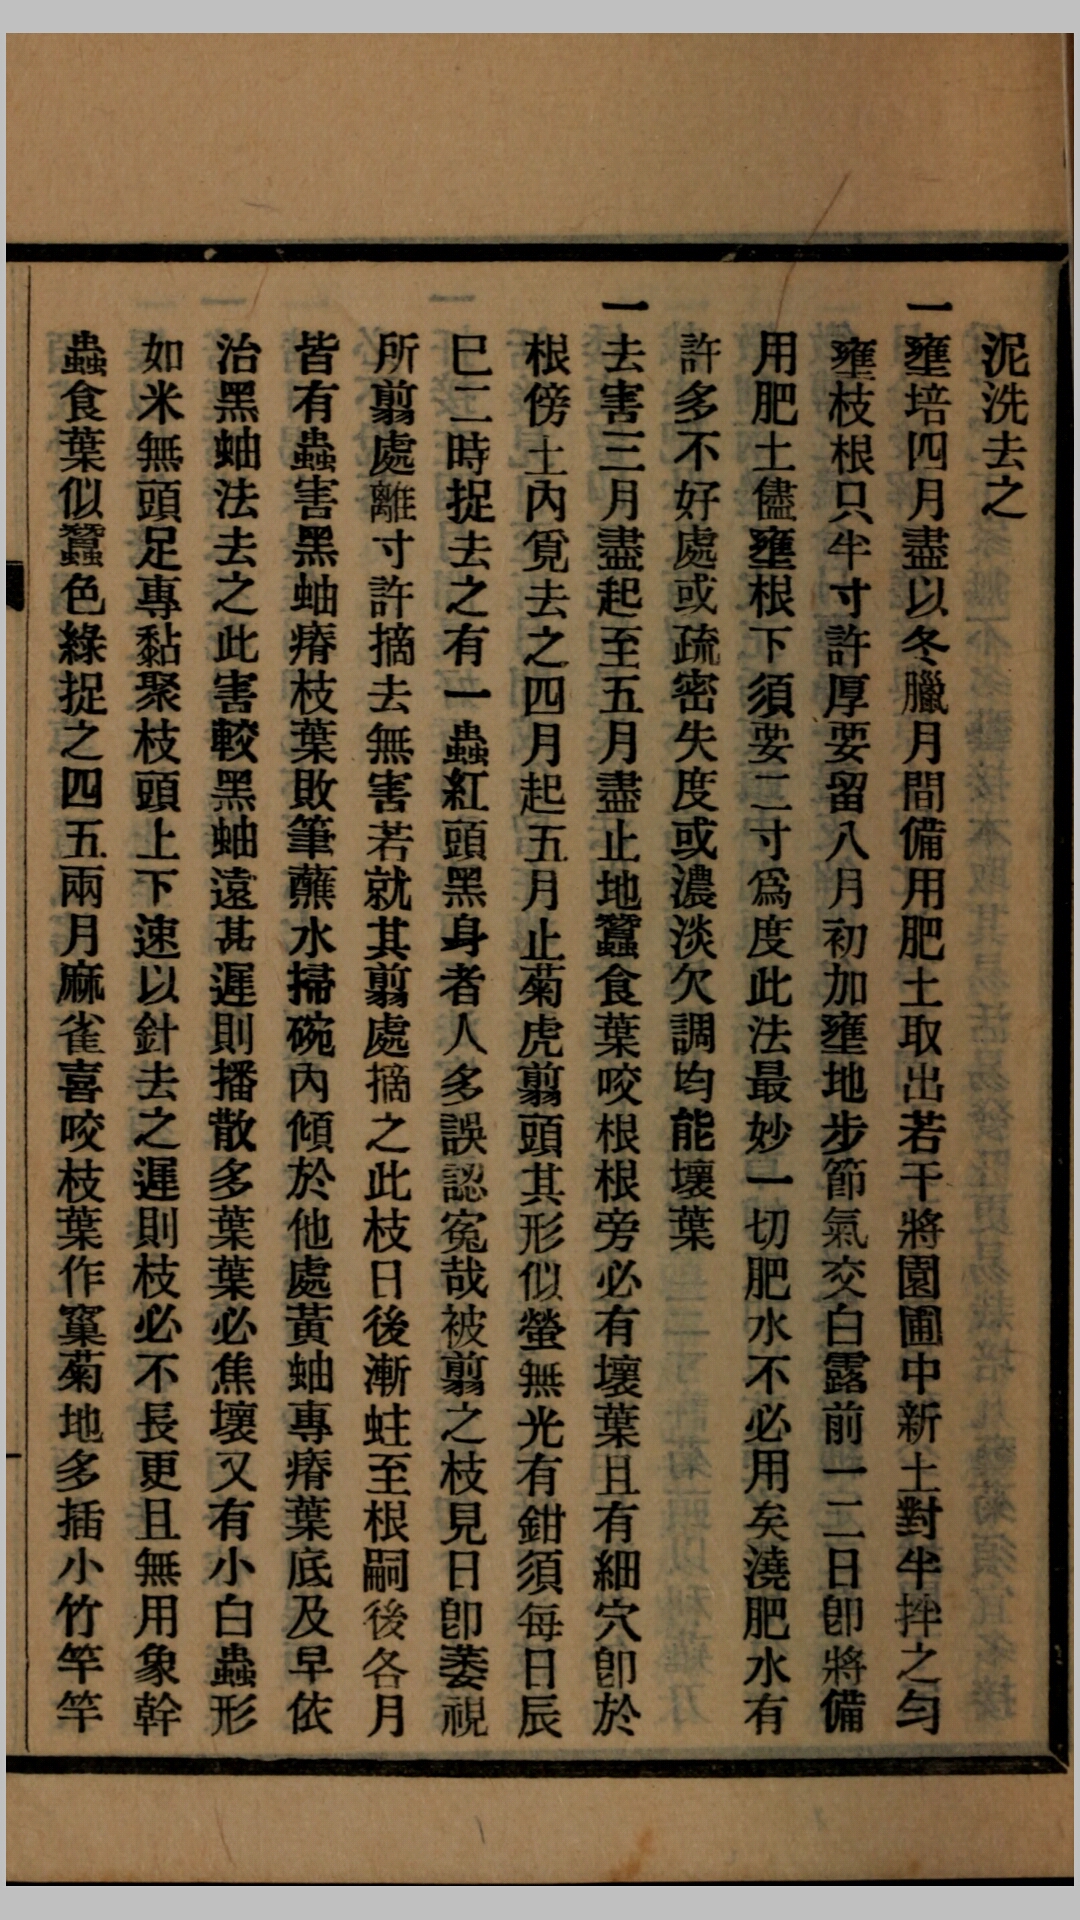 泥洗去之
一壅培四月盡以冬臘月間備用肥土取出若干將園圃中新土對半拌之勻
壅枝根只半寸許厚要留八月初加壅地步節氣交白露前一二日卽將備
用肥土儘壅根下須要二寸爲度此法最妙一切肥水不必用矣澆肥水有
許多不好處或疏密失度或濃淡欠調均能壞葉
一去害三月盡起至五月盡止地蠶食葉咬根根旁必有壞葉且有細穴卽於
根傍土內覓去之四月起五月止菊虎翦頭其形似螢無光有鉗須每日辰
巳二時捉去之有一蟲紅頭黑身者人多誤認寃哉被翦之枝見日卽萎視
所翦處離寸許摘去無害若就其翦處摘之此枝日後漸蛀至根嗣後各月
皆有蟲害黑蚰瘠枝葉敗筆蘸水掃碗內傾於他處黃蚰專瘠葉底及早依
治黑蚰法去之此害較黑蚰遠甚遲則播散多葉葉必焦壞又有小白蟲形
如米無頭足專黏聚枝頭上下速以針去之遲則枝必不長更且無用象幹
蟲食葉似蠶色綠捉之四五兩月麻雀喜咬枝葉作窠菊地多插小竹竿竿